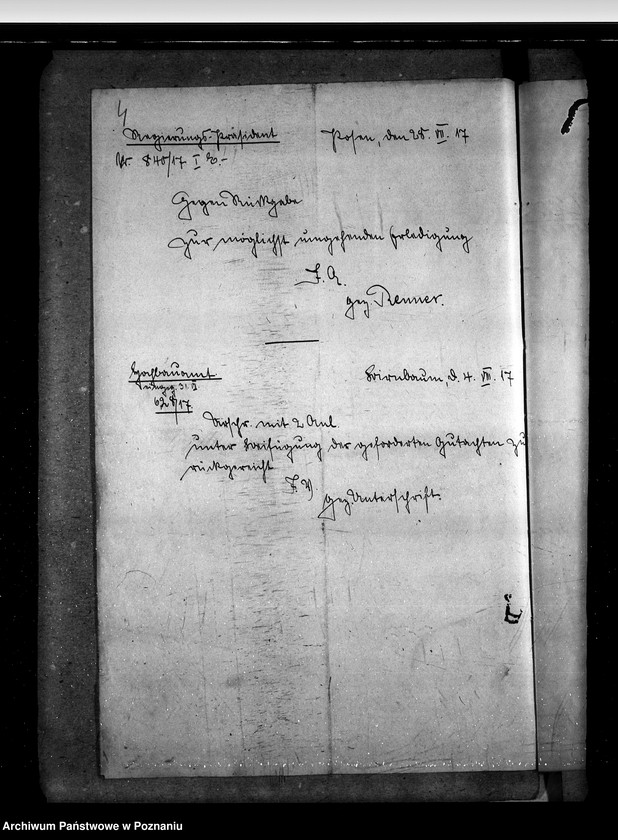 4
Regierungs-Präsident Posen, den 28. VII. 17
Nr. 840/17 I
Gegen Rückgabe
zur möglichst umgehenden Erledigung
I. A.
gez. Renner.
Hochbauamt Birnbaum, d. 4. VIII. 17
628/17
Urschr. mit 2 Anl.
unter Beifügung der geforderten Gutachten zu
rückgereicht
I. V.
gez. Unterschrift.
Archiwum Państwowe w Poznaniu